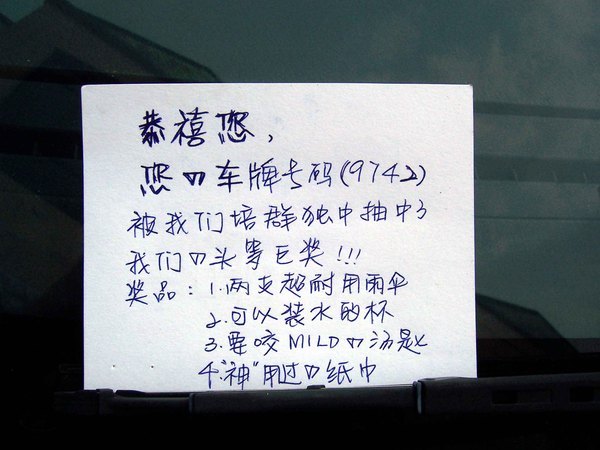 恭禧您,
您の车牌号码(9742)
被我们培群独中抽中了
我们の头等巨奖!!!
奖品:1.两支超耐用雨伞
2.可以装水的杯
3.要咬MILOの汤匙
4."神"用过の纸巾